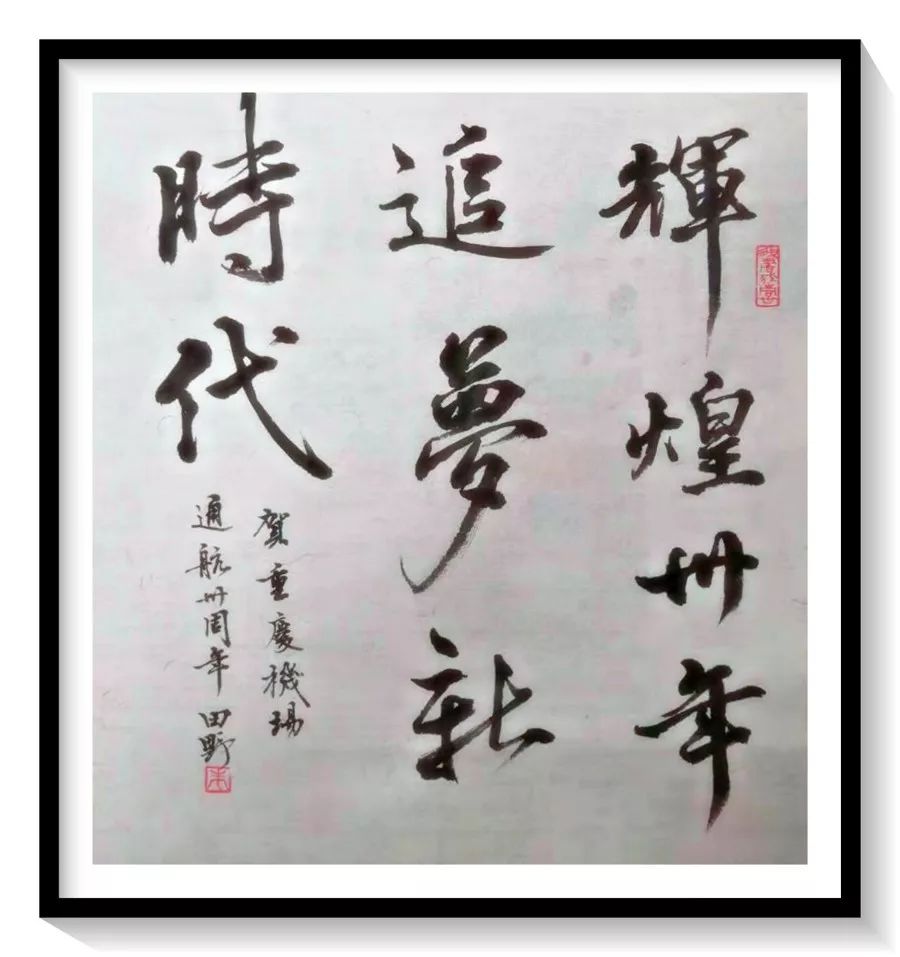 輝煌卅年
追夢新
時代
賀重慶機場
通航卅周年 田野